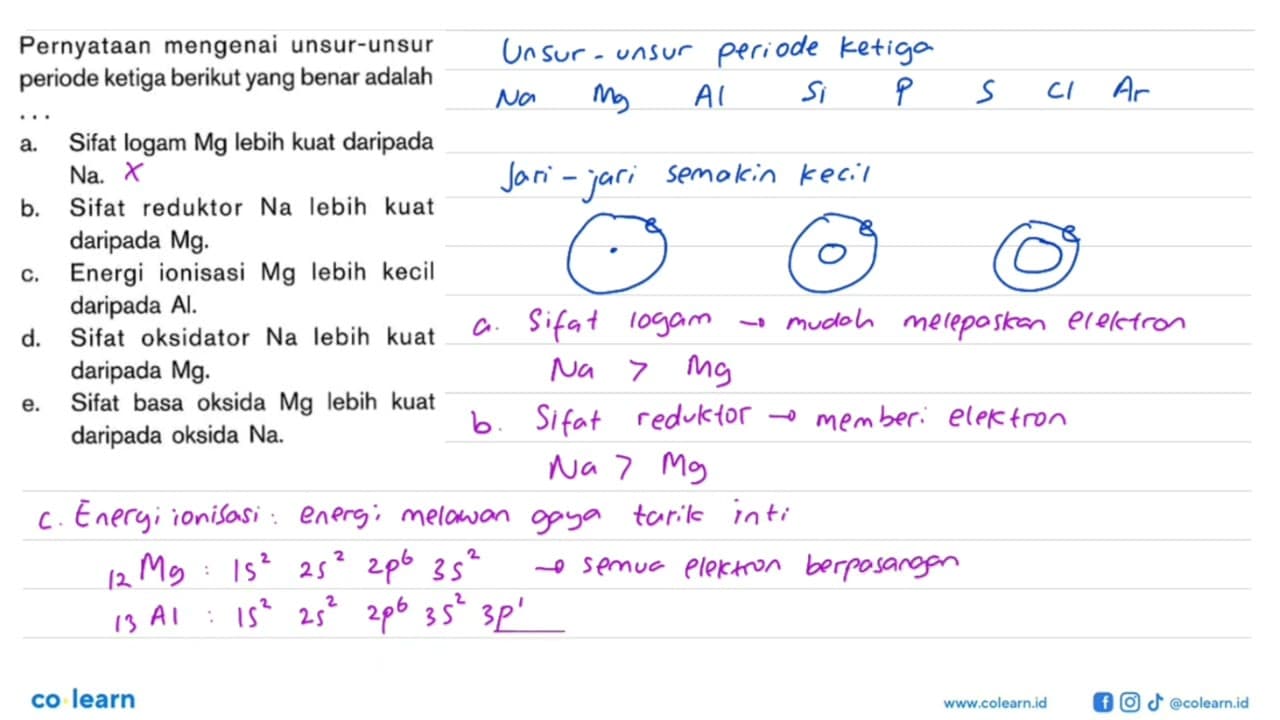 Pernyataan mengenai unsur-unsur
periode ketiga berikut yang benar adalah
...
a. Sifat logam Mg lebih kuat daripada
Na. X
b. Sifat reduktor Na lebih kuat
daripada Mg.
c. Energi ionisasi Mg lebih kecil
daripada Al.
d. Sifat oksidator Na lebih kuat
daripada Mg.
e. Sifat basa oksida Mg lebih kuat
daripada oksida Na.
Unsur-unsur periode ketiga
Na Mg Al Si P S Cl Ar
Jari-jari semakin kecil
a. Sifat logam → mudah melepaskan elektron
Na > Mg
b. Sifat reduktor → memberi elektron
Na > Mg
c. Energi ionisasi : energi melawan gaya tarik inti
₁₂Mg : 1s² 2s² 2p⁶ 3s² → semua elektron berpasangan
₁₃Al : 1s² 2s² 2p⁶ 3s² 3p¹
co learn
www.colearn.id @colearn.id